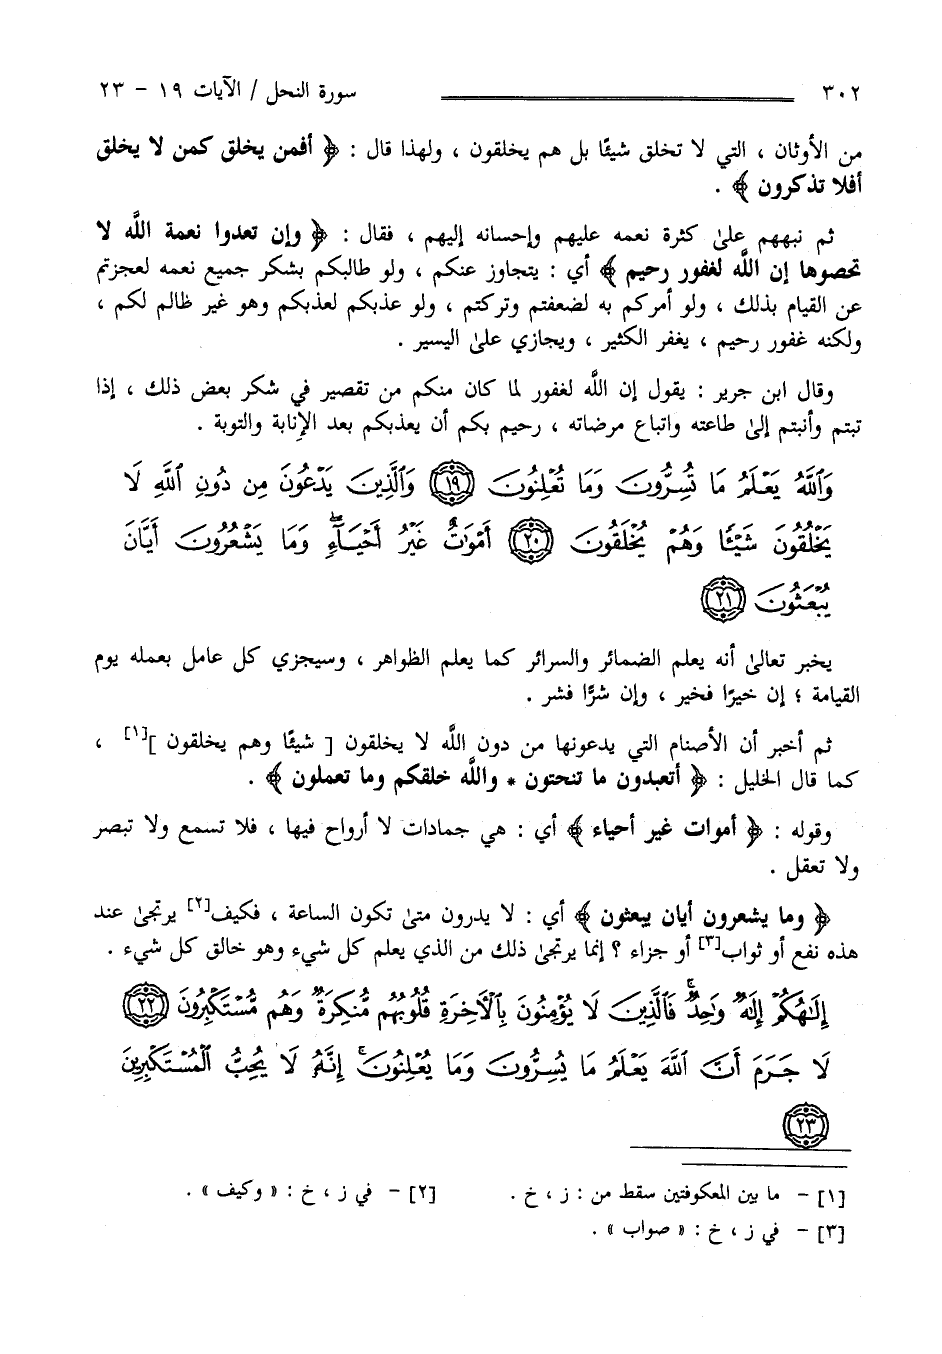 ٣٠٢ سورة النحل / الآيات ١٩ - ٢٣
من الأوثان ، التي لا تخلق شيئًا بل هم يخلقون ، ولهذا قال : ﴿ أفمن يخلق كمن لا يخلق
أفلا تذكرون ﴾ .
ثم نبههم علىٰ كثرة نعمه عليهم وإحسانه إليهم ، فقال : ﴿ وإن تعدوا نعمة اللَّه لا
تحصوها إن اللَّه لغفور رحيم ﴾ أي : يتجاوز عنكم ، ولو طالبكم بشكر جميع نعمه لعجزتم
عن القيام بذلك ، ولو أمركم به لضعفتم وتركتم ، ولو عذبكم لعذبكم وهو غير ظالم لكم ،
ولكنه غفور رحيم ، يغفر الكثير ، ويجازي علىٰ اليسير .
وقال ابن جرير : يقول إن اللَّه لغفور لما كان منكم من تقصير في شكر بعض ذلك ، إذا
تبتم وأنبتم إلىٰ طاعته واتباع مرضاته ، رحيم بكم أن يعذبكم بعد الإنابة والتوبة .
وَٱللَّهُ يَعْلَمُ مَا تُسِرُّونَ وَمَا تُعْلِنُونَ ١٩ وَٱلَّذِينَ يَدْعُونَ مِن دُونِ ٱللَّهِ لَا
يَخْلُقُونَ شَيْـًٔا وَهُمْ يُخْلَقُونَ ٢٠ أَمْوَٰتٌ غَيْرُ أَحْيَآءٍۖ وَمَا يَشْعُرُونَ أَيَّانَ
يُبْعَثُونَ ٢١
يخبر تعالىٰ أنه يعلم الضمائر والسرائر كما يعلم الظواهر ، وسيجزي كل عامل بعمله يوم
القيامة ؛ إن خيرًا فخير ، وإن شرًّا فشر .
ثم أخبر أن الأصنام التي يدعونها من دون اللَّه لا يخلقون [ شيئًا وهم يخلقون ][١] ،
كما قال الخليل : ﴿ أتعبدون ما تنحتون * واللَّه خلقكم وما تعملون ﴾ .
وقوله : ﴿ أموات غير أحياء ﴾ أي : هي جمادات لا أرواح فيها ، فلا تسمع ولا تبصر
ولا تعقل .
﴿ وما يشعرون أيان يبعثون ﴾ أي : لا يدرون متىٰ تكون الساعة ، فكيف[٢] يرتجىٰ عند
هذه نفع أو ثواب[٣] أو جزاء ؟ إنما يرتجىٰ ذلك من الذي يعلم كل شيء وهو خالق كل شيء .
إِلَٰهُكُمْ إِلَٰهٌ وَٰحِدٌۚ فَٱلَّذِينَ لَا يُؤْمِنُونَ بِٱلْأَخِرَةِ قُلُوبُهُم مُّنكِرَةٌ وَهُم مُّسْتَكْبِرُونَ ٢٢
لَا جَرَمَ أَنَّ ٱللَّهَ يَعْلَمُ مَا يُسِرُّونَ وَمَا يُعْلِنُونَۚ إِنَّهُۥ لَا يُحِبُّ ٱلْمُسْتَكْبِرِينَ
٢٣
[١] - ما بين المعكوفتين سقط من : ز ، خ . [٢] - في ز ، خ : « وكيف » .
[٣] - في ز ، خ : « صواب » .